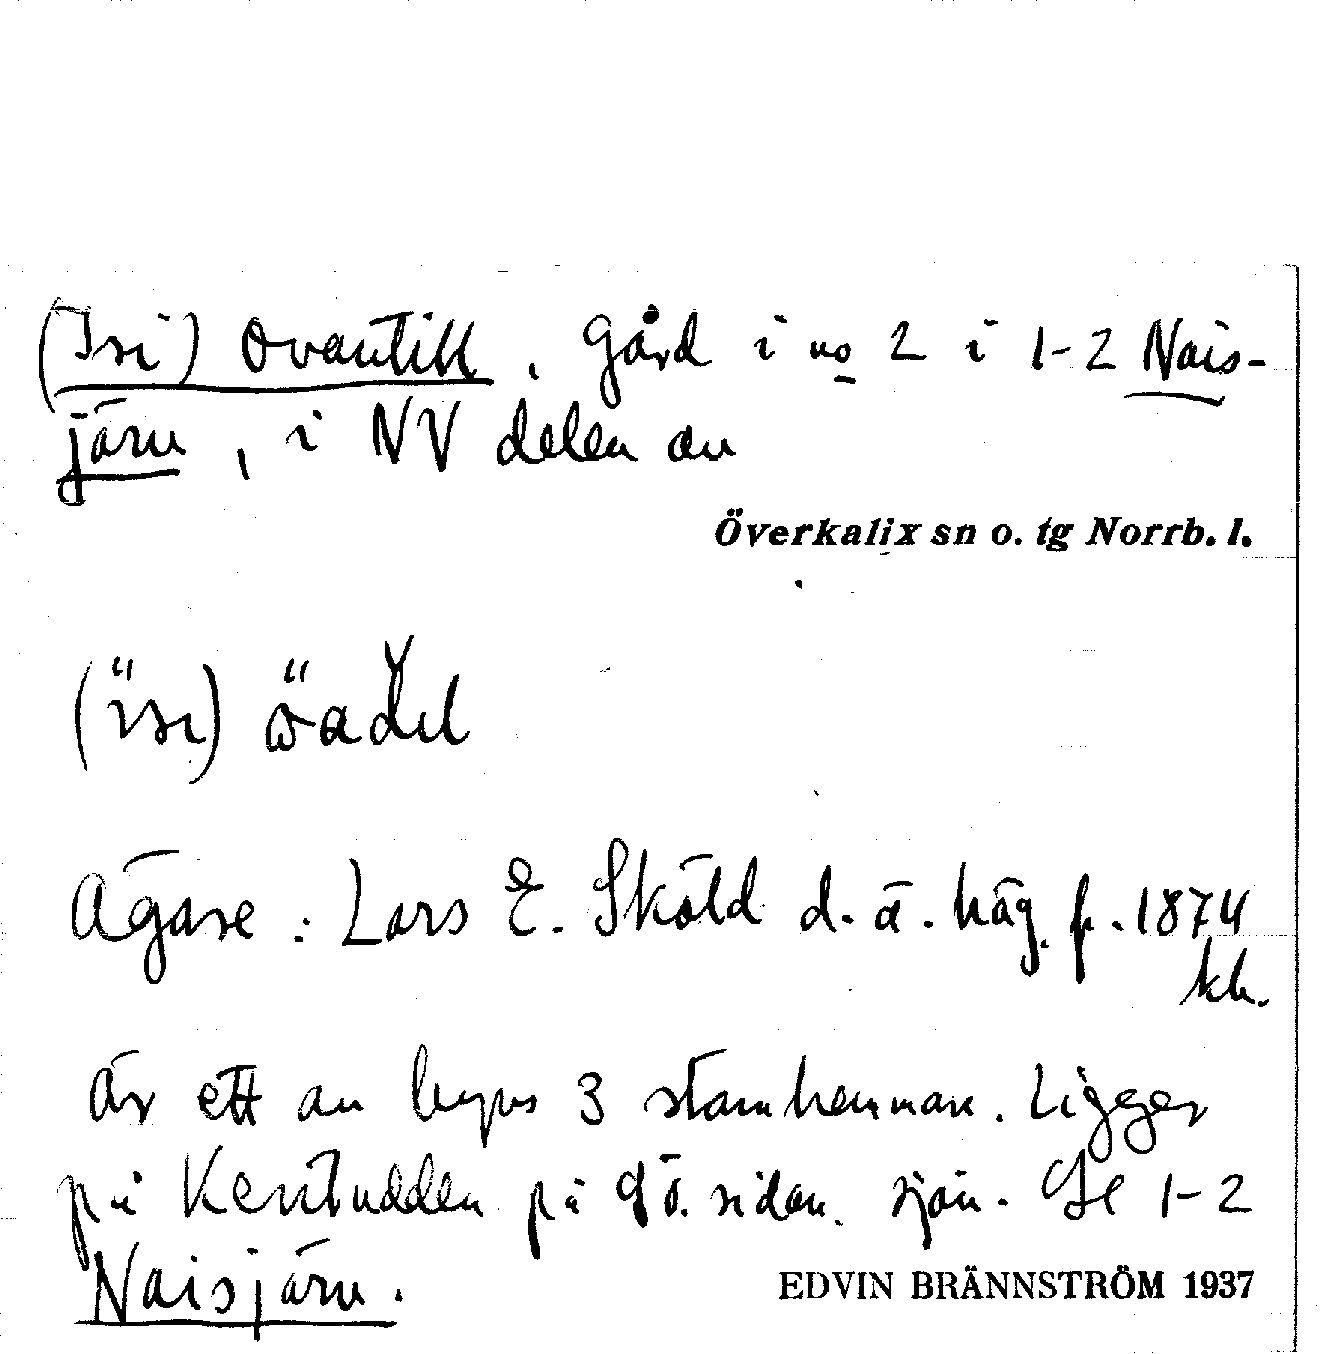 (Isi) Ovantill, Gård i no 2 i 1-2 Nais-
järv, i NV delen av
Överkalix sn o. tg Norrb. l.
(isi)
Ägare: Lars E. Sköld d.ä. häg. f. 1874
kh.
är ett av byns 3 stamhemman. Ligger
på Kentudden på sidan sjön. Se 1-2
Naisjärv.
EDVIN BRÄNNSTRÖM 1937